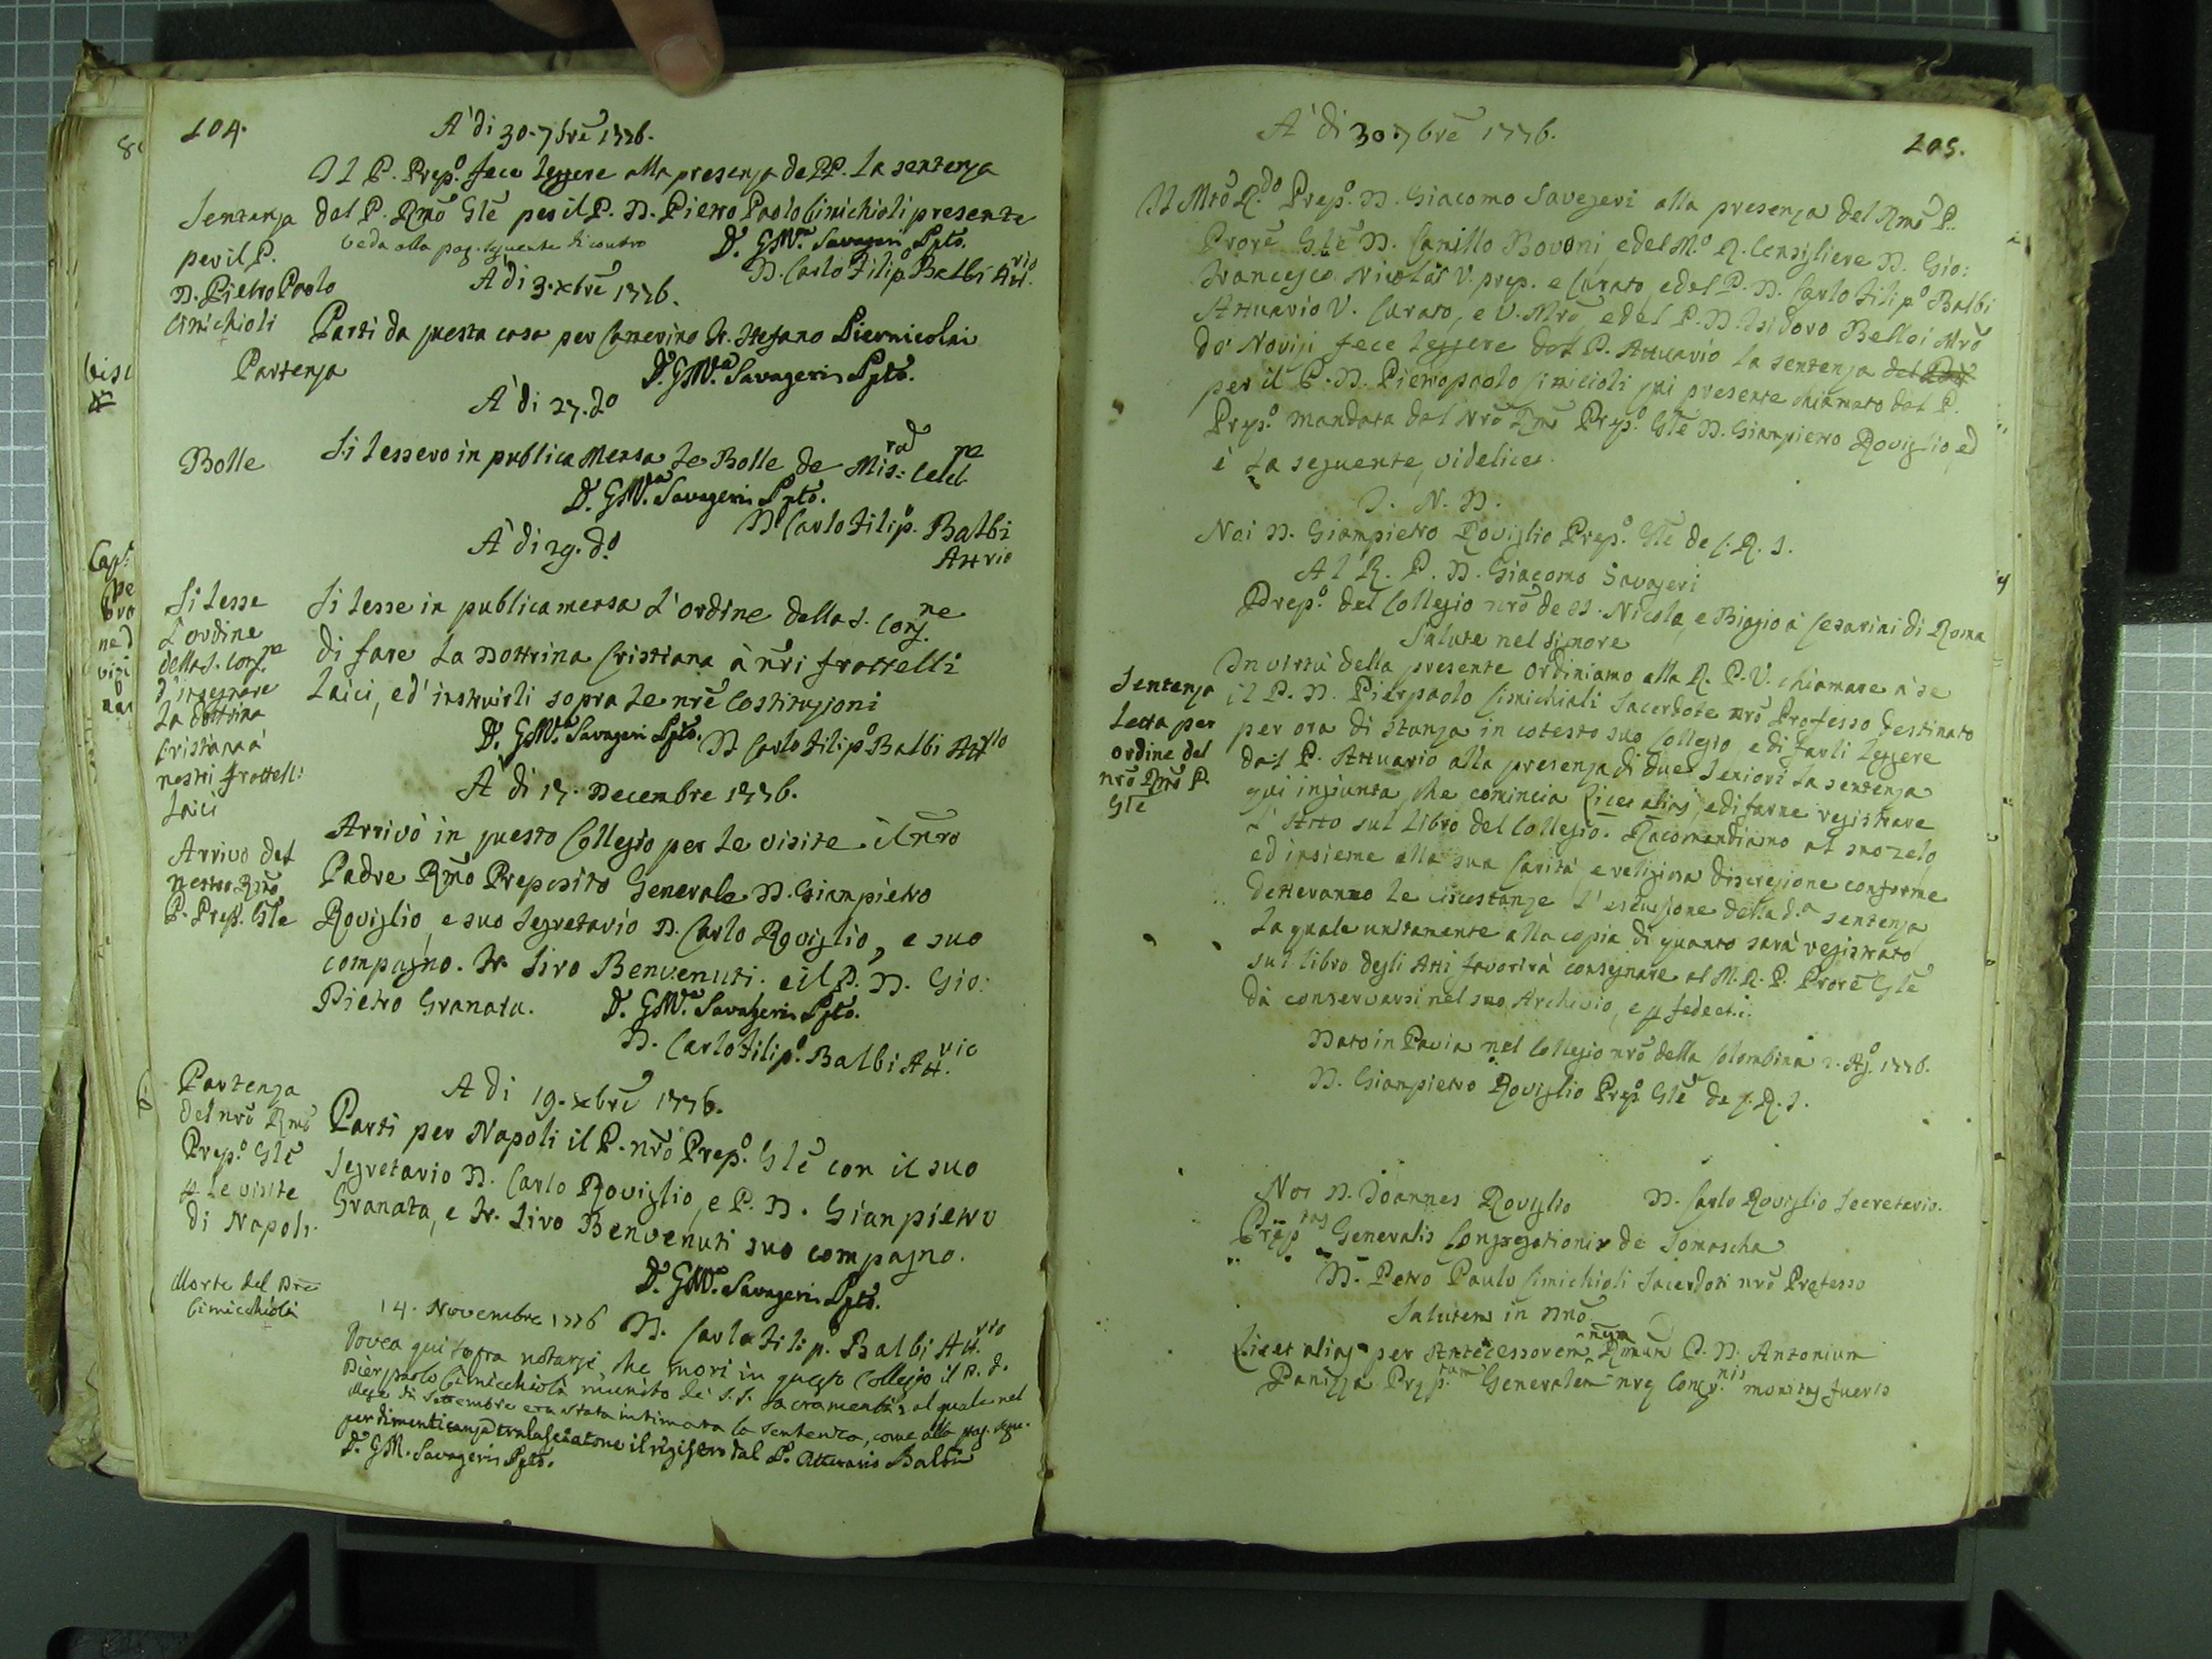 104.
A' di 30. 7bre 1776.
Il P. Prep.o fece leggere alla presenza de PP. la sentenza
del P. Rmo Gle per il P. D. Pietro Paolo Cimichioli presente
veda alla pag. seguente di contro
D. G. M.a Savageri Ppto.
D. Carlo Filip.o Balbi Att.rio
Sentenza
per il P.
D. Pietro Paolo
Cimichioli
A' di 3. xbre 1776.
Partì da questa casa per Camerino Fr. Stefano Piernicolai
D. G. M.a Savageri Ppto.
Partenza
A' di 27. do
Si lessero in publica mensa le Bolle de Mis: Celeb
D. G. M.a Savageri Ppto.
D. Carlo Filip.o Balbi
Att rio
Bolle
A' di 29. d.o
Si lesse in publica mensa l'ordine della S. Cong.ne
di fare la Dottrina Cristiana à nri frattelli
laici, ed' instruirli sopra le nre Costituzioni
D. G. M.a Savageri Ppto.
D Carlo Filip.o Balbi Att.rio
Si lesse
l'ordine
della S. Cong.ne
d'insegnare
la dottrina
cristiana à
nostri frattelli
laici
A' di 17. Decembre 1776.
Arrivò in questo Collegio per le visite il nro
Padre Rmo Preposito Generale D. Gianpietro
Roviglio, e suo Segretario D. Carlo Roviglio, e suo
compagno. Fr. Siro Benvenuti. e il P. D. Gio:
Pietro Granata.
D. G. M.a Savageri Ppto.
D. Carlo Filip.o Balbi Att.rio
Arrivo del
nostro Rmo
P. Prep. Gle
A di 19. xbre 1776.
Partì per Napoli il P. nro Prep.o Gle con il suo
Segretario D. Carlo Roviglio, e P. D. Gianpietro
Granata, e Fr. Siro Benvenuti suo compagno.
D. G. M.a Savageri Ppto.
D. Carlo Filip.o Balbi Att.rio
Partenza
del nro Rmo
Prep.o Gle
p le visite
di Napoli.
Morte del Pre
Cimicchioli
14. Novembre 1776
Dovea qui sopra notarsi, che morì in questo Collegio il P. D.
Pier paolo Cimicchioli munito dei S.S. Sacramenti, al quale nel
Mese di Settembre era stata intimata la sentenza, come alla pag. segue.
per dimenticanza tralasciatone il registro dal P. Attuario Balbi
D. G. M. Savageri Ppto.
105.
A' di 30 7bre 1776.
Il Mto R.do Prep.o D. Giacomo Savegeri alla presenza del Rmo P.
Prore Gle D. Camillo Bovoni, e del M.o R. Consigliere D. Gio:
Francesco Nicolai V. prep. e Curato, e del P. D. Carlo Filip.o Balbi
Attuario V. Curato, e V. Mro, e del P. D. Isidoro Belloi Mro
de' Novizi fece leggere dal P. Attuario la sentenza del
per il P. D. Pietropaolo Cimicioli qui presente chiamato dal P.
Prep.o mandata dal Nro Rmo Prep.o Gle D. Gianpietro Roviglio, ed
è la seguente, videlicet.
I. N. D.
Noi D. Giampietro Roviglio Prep.o Gle de C. R. S.
Al R. P. D. Giacomo Savageri
Prep.o del Collegio nro de SS. Nicola, e Biagio à Cesarini di Roma
Salute nel Signore
In virtù della presente ordiniamo alla R. P. V. chiamare à se
il P. D. Pierpaolo Cimichioli Sacerdote nro Professo destinato
per ora di stanza in cotesto suo Collegio, e di farli leggere
dal P. Attuario alla presenza di due Seniori la sentenza
qui ingiunta, che comincia Licet alias, e di farne registrare
l'Atto sul libro del Collegio. Racomandiamo al suo zelo
ed insieme alla sua Carità, e religiosa discrezione conforme
detteranno le circostanze l'esecuzione della d.a sentenza
la quale unitamente alla copia di quanto sarà registrato
sul libro degli Atti favorirà consegnare al M. R. P. Prore Gle
da conservarsi nel suo Archivio, e p fede et.i.
Dato in Pavia nel Collegio nro della Colombina 2. Ag.o 1776.
D. Gianpietro Roviglio Prep.o Gle de C. R. S.
Sentenza
letta per
ordine del
nro Rmo P.
Gle
Nos D. Joannes Roviglio
D. Carlo Roviglio Secretario.
Prep.tus Generalis Congregationis de Somascha
D. Petro Paulo Cimichioli Sacerdoti nro Professo
Salutem in Dno
Licet alias per Antecessorem nrum Rmum P. D. Antonium
Panizza Prep.tum Generalem nrę Cong.nis monitus fueris